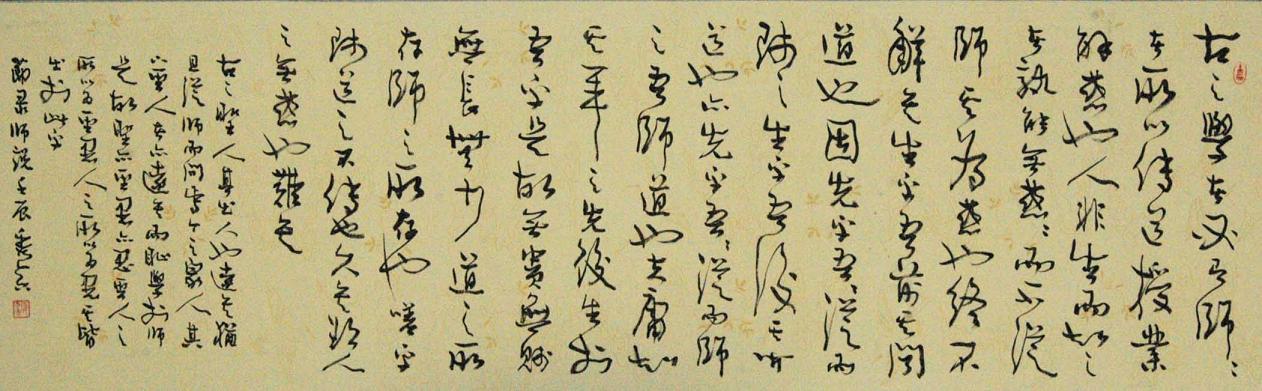 古之學者必有師〻
者所以傳道授業
解惑也人非生而知之
者孰能無惑〻而不從
師其為惑也終不
解矣生乎吾前其聞
道也固先乎吾〻從而
師之生乎吾後其聞
道也亦先乎吾〻從而師
之吾師道也夫庸知
其年之先後生於
吾乎是故無貴無賤
無長無少道之所
存師之所存也嗟乎
師道之不傳也久矣欲人
之無惑也難矣
古之聖人其出人也遠矣猶
且從師而問焉今之眾人其
下聖人者亦遠矣而恥學於師
是故聖益聖愚益愚聖人之
所以為聖愚人之所以為愚其皆
出於此乎
節录師說壬辰